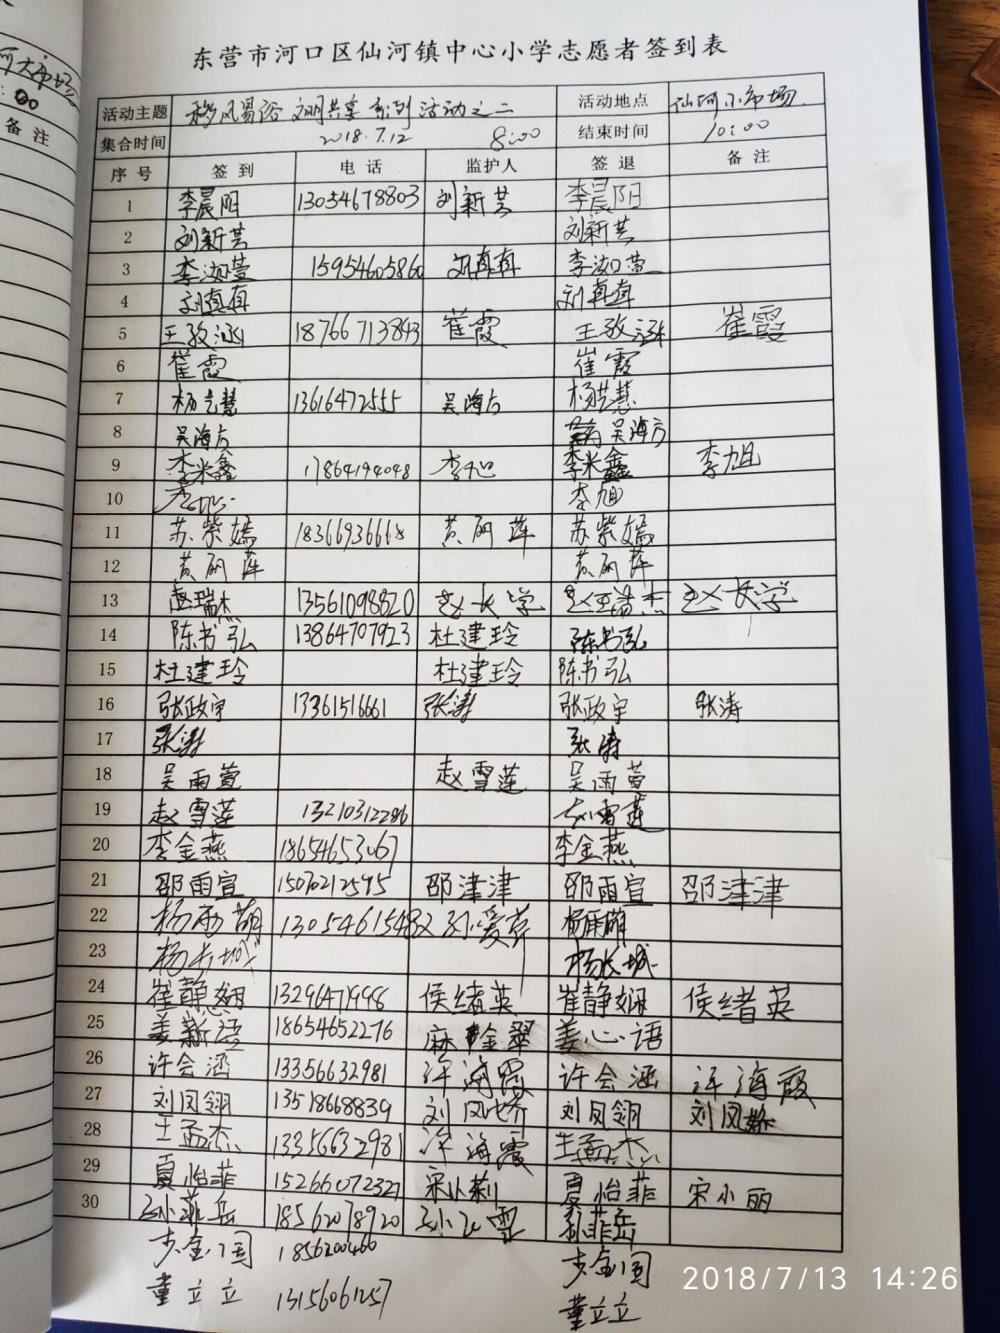 东营市河口区仙河镇中心小学志愿者签到表
活动主题 移风易俗 文明共享 系列活动之二 活动地点 仙河小市场
集合时间 2018.7.12 8:00 结束时间 10:00
序号 签到 电话 监护人 签退 备注
备注
1 李晨阳 13054678803 刘新芸 李晨阳
2 刘新芸 刘新芸
3 李淑萱 15954605860 刘真真 李淑萱
4 刘真真 刘真真
5 王孜涵 18766713843 崔霞 王孜涵 崔霞
6 崔霞 崔霞
7 13616472555 吴海方
8 吴海方 吴海方
9 李米鑫 17864194048 李旭 李米鑫 李旭
10 李旭 李旭
11 苏紫嫣 18366936668 黄丽萍 苏紫嫣
12 黄丽萍 黄丽萍
13 赵瑞杰 13561098820 赵长学 赵瑞杰 赵长学
14 陈书弘 13864707923 杜建玲 陈书弘
15 杜建玲 杜建玲 陈书弘
16 张政宇 13361516661 张涛 张政宇 张涛
17 张涛 张涛
18 吴雨萱 赵雪莲 吴雨萱
19 赵雪莲 13210312286 赵雪莲
20 李金燕 18654653067 李金燕
21 邵雨宣 15070212595 邵津津 邵雨宣 邵津津
22 杨雨萌 杨雨萌
23 杨长城 杨长城
24 崔静娴 13296471998 侯绪英 崔静娴 侯绪英
25 姜新语 18654652276 麻金翠 姜心语
26 许会涵 13356632981 许海霞 许会涵 许海霞
27 刘凤翎 13518668839 刘凤翎
28 王孟杰 13356632981 许海霞 王孟杰
29 夏怡菲 15266072327 夏怡菲 宋小丽
30 孙菲岳 18562078920 孙菲岳
步金国 1856200466 步金国
董立立 13156061257 董立立
2018/7/13 14:26